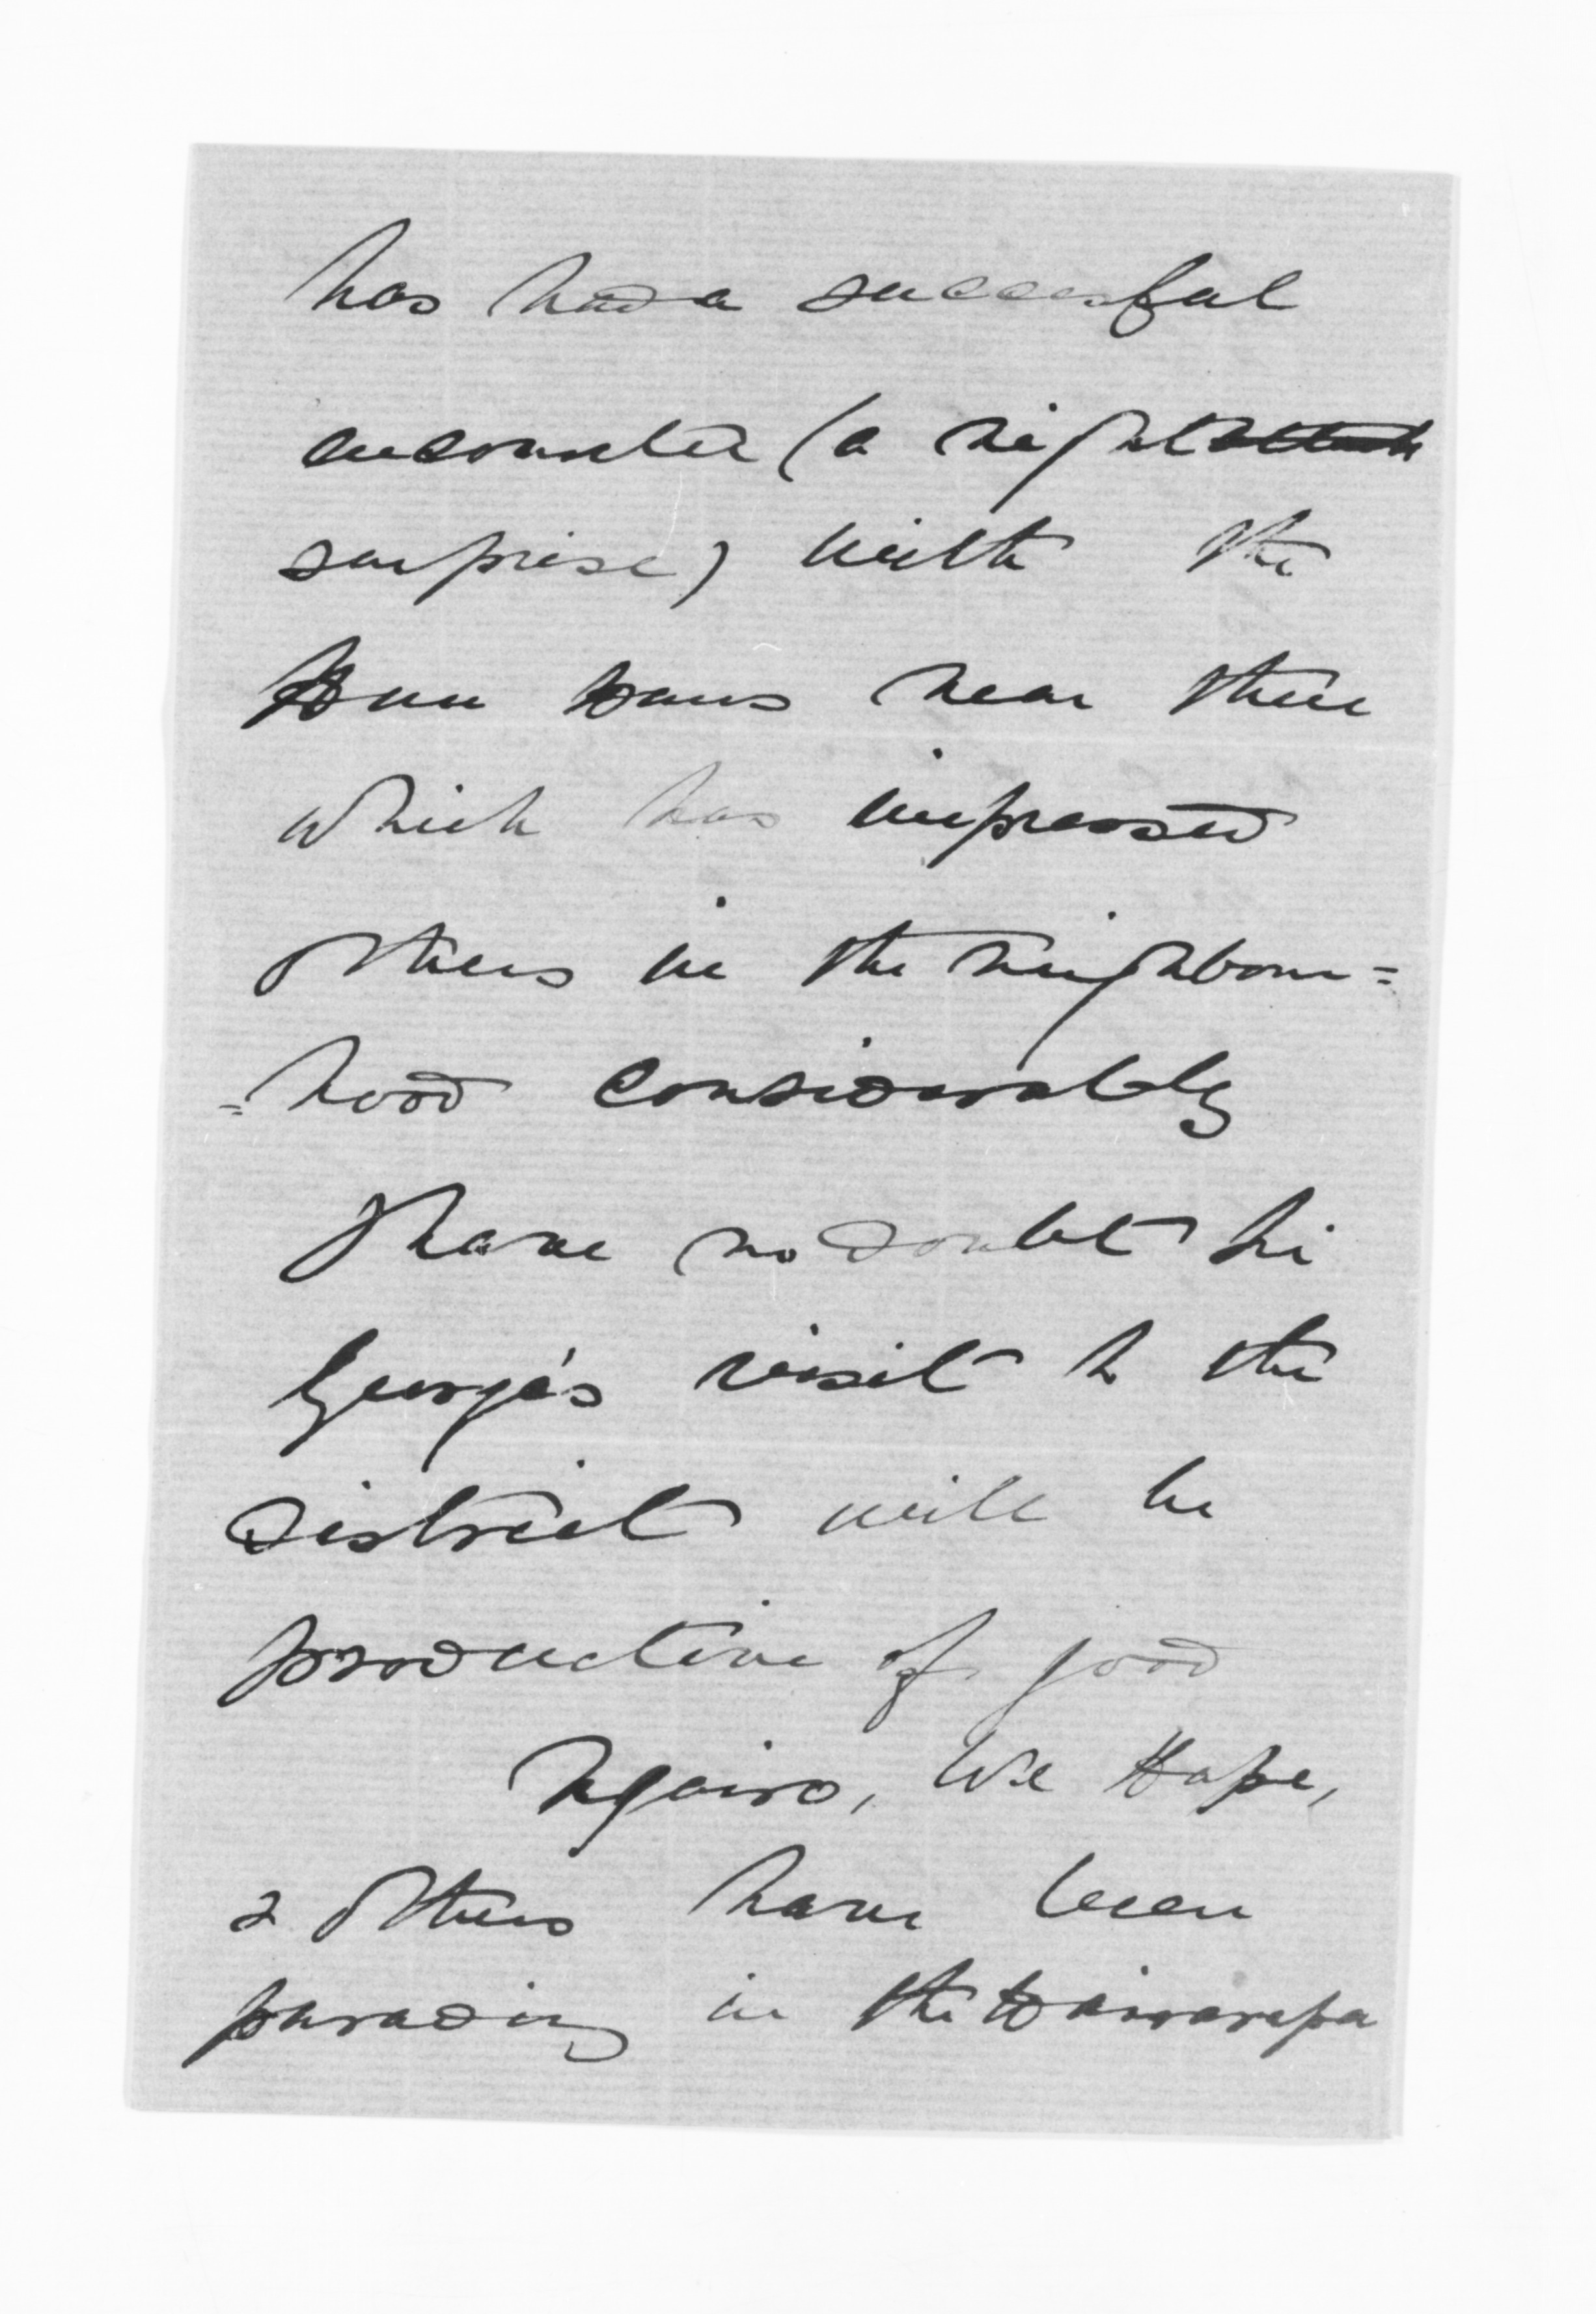 has had a successful
encounter (a night
surprise) with the
Hau Haus near there
which has impressed
others in the neighbour=
=hood considerably
I have no doubt Sir
George's visit to the
District will be
productive of good
Ngairo, Wi Hape,
& others have been
parading in the Wairarapa